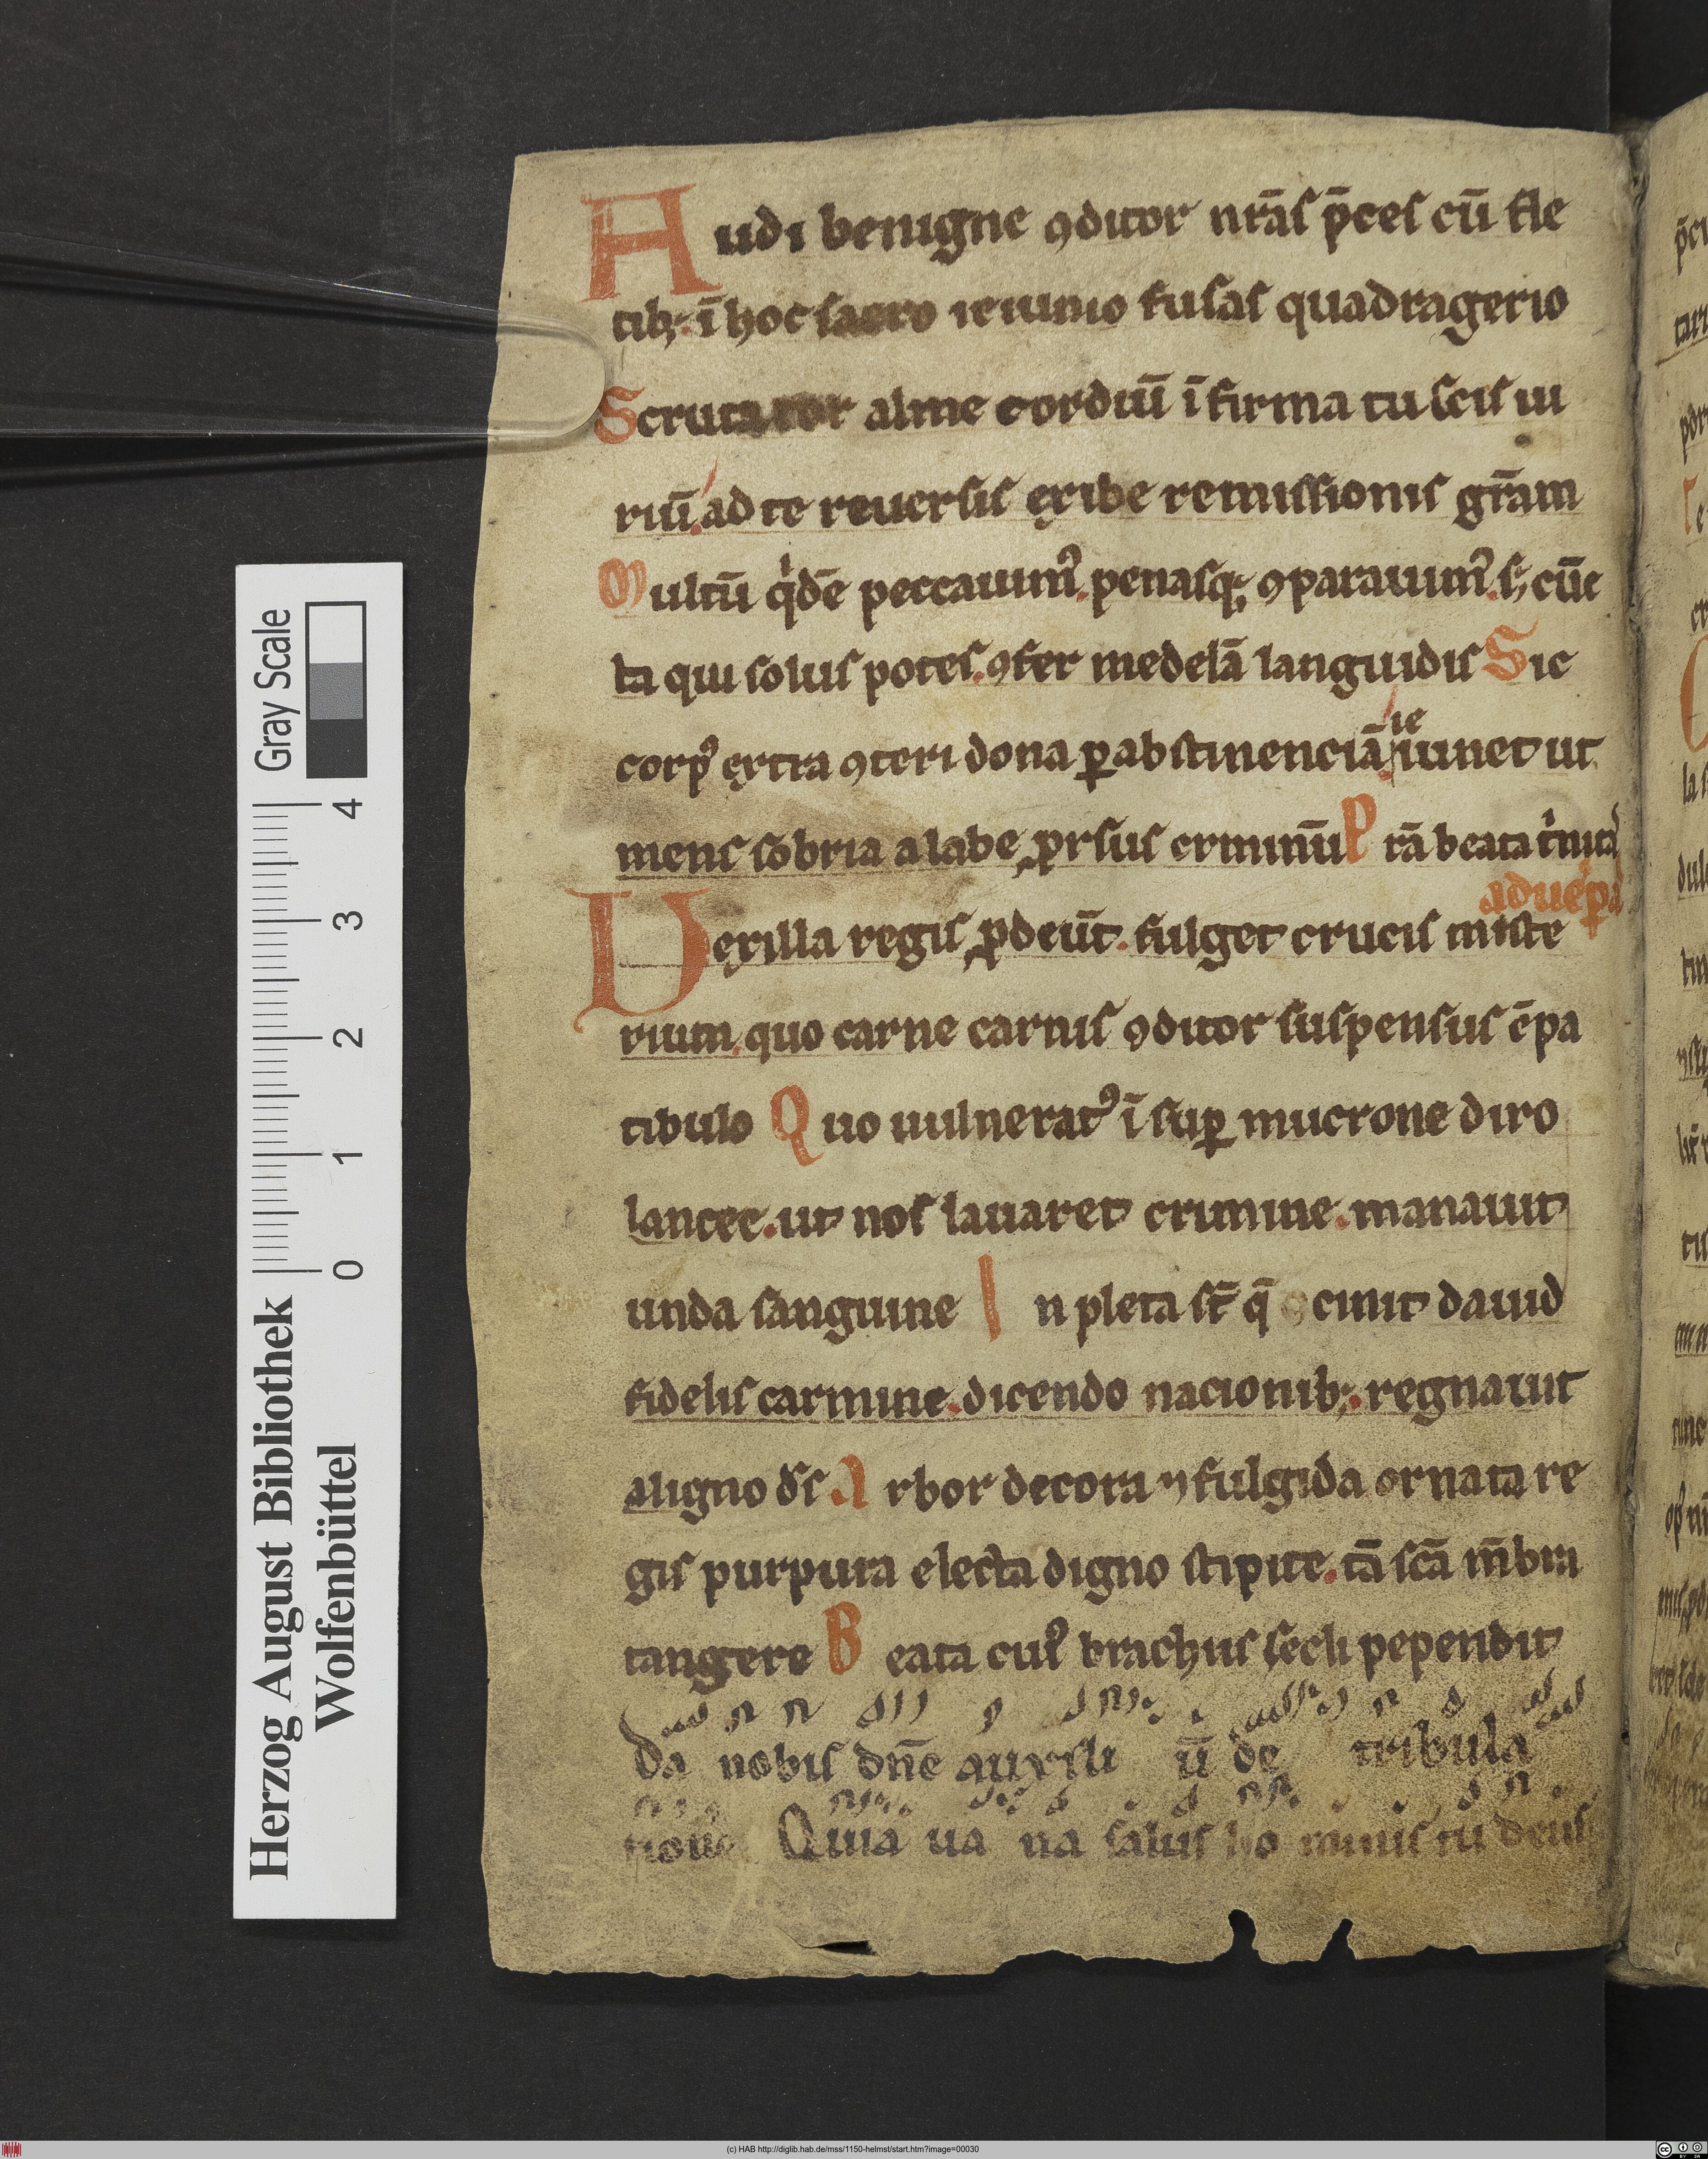 Audi benigne ꝯditor nr̄as p̄ces cū fle
tib; ī hoc sacro ieiunio fusas quadragerio
Scrutator alme cordiū īfirma tu scis ui
riū. ad te reuersis exibe remissionis gr̄am
Multū qͥdē peccauimꝰ. penasq; ꝯparauimꝰ. s; cūc
ta qui solus potes. ꝯfer medelā languidis Sic
ie
corpꝰ extra ꝯteri dona ꝑ abstinenciā iunet ut
mens sobria a labe ꝓrsus criminū P rā beata tͥnitaͣ
aduēpā
Vexilla regis ꝓdeūt. fulget crucis miste
rium. quo carne carnis ꝯditor suspensus ē pa
tibulo Quo uulneratꝰ īsuꝑ mucrone diro
lancee. ut nos lauaret crimine. manauit
unda sanguine Inpleta st̄ q̄ ꝯcinit dauid
fidelis carmine. dicendo nacionib;. regnauit
a ligno ds̄ Arbor decora ⁊ fulgida ornata re
gis purpura electa digno stipite. tā scā m̄bra
tangere Beata cuiꝰ brachiis secli pependit
Da nobis dn̄e auxili ū de tribula
tione Quia ua na salus ho minis tu deus
Herzog August Bibliothek
Wolfenbüttel
0 1 2 3 4
Gray Scale
(c) HAB http://diglib.hab.de/mss/1150-helmst/start.htm?image=00030